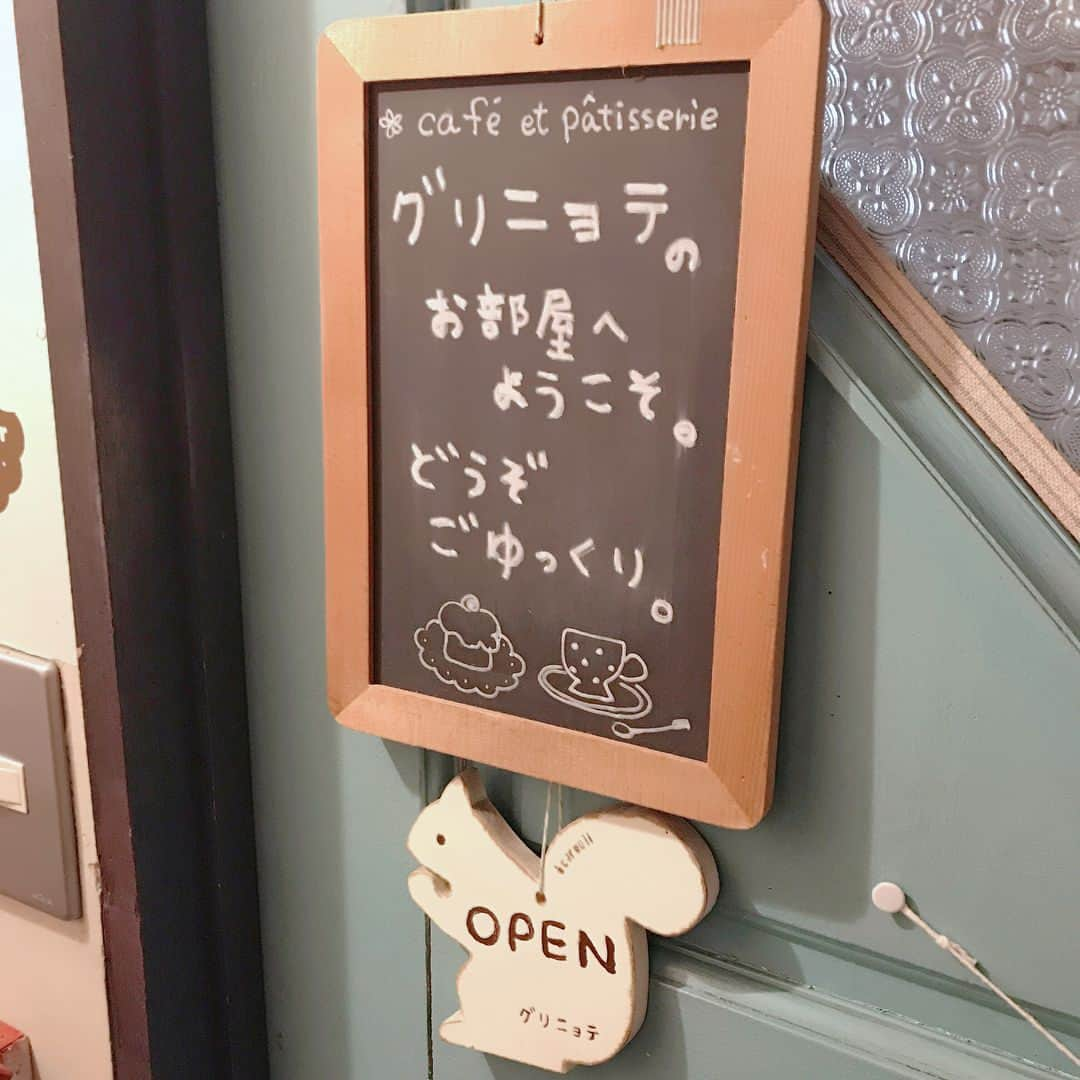 café et pâtisserie
グリニョテの
お部屋へ
ようこそ。
どうぞ
ごゆっくり。
OPEN
グリニョテ